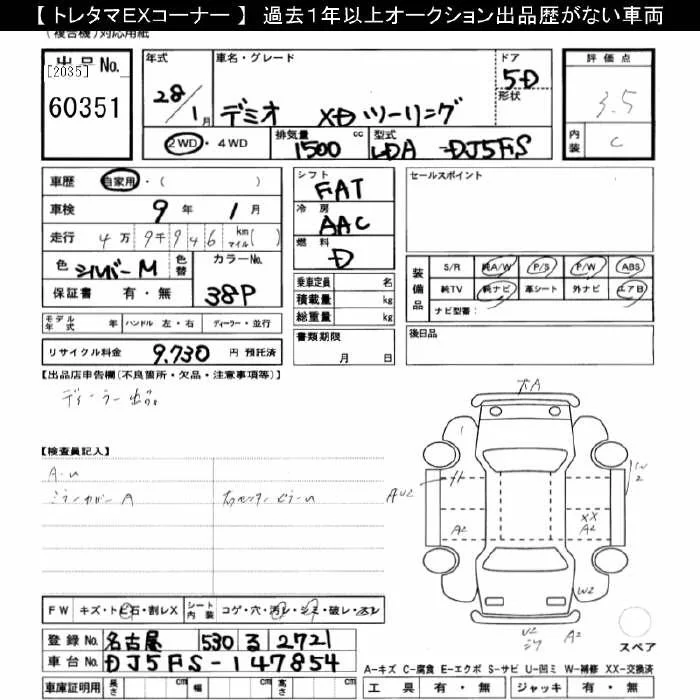 【 トレタマEXコーナー 】 過去1年以上オークション出品歴がない車両
(複合機)対応用紙
出品No.
[2035]
60351
年式 28/1月
車名・グレード デミオ XD ツーリング
ドア 5D
形状
評価点 3.5
内装 C
2WD・4WD
排気量 1500 cc
型式 LDA-DJ5FS
車歴 自家用・( )
車検 9年 1月
走行 4万9千946 km マイル( )
色 シルバーM
色替
カラーNo. 38P
保証書 有・無
モデル年式 年 ハンドル 左・右 ディーラー・並行
リサイクル料金 9,730 円 預託済
シフト FAT
冷房 AAC
燃料 D
乗車定員 名
積載量 kg
総重量 kg
書類期限 月 日
セールスポイント
装備品
S/R 純A/W P/S P/W ABS
純TV 純ナビ 革シート 外ナビ エアB
ナビ型番:
後日品
【出品店申告欄(不良箇所・欠品・注意事項等)】
ディーラー出品。
【検査員記入】
A・U
ミラーカバーA
FW キズ・トビ石・割レX
シート内装 コゲ・穴・汚レ・シミ・破レ・スレ
登録No. 名古屋 530 る 2721
車台No. DJ5FS-147854
車庫証明用 長さ cm 幅 cm 高さ cm
A
1
AU2
A2
XX
A2
W2
U2
A2
スペア
A-キズ C-腐食 E-エクボ S-サビ U-凹ミ W-補修 XX-交換済
工具 有・無 ジャッキ 有・無